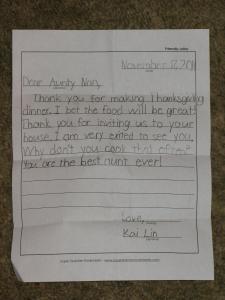 Friendly Letter
November 17, 2011
Dear Aunty Nan,
Thank you for making Thanksgiving
dinner. I bet the food will be great!
Thank you for inviting us to your
house. I am very exited to see you.
Why don't you cook that often?
You are the best aunt ever!
Love,
Kai Lin